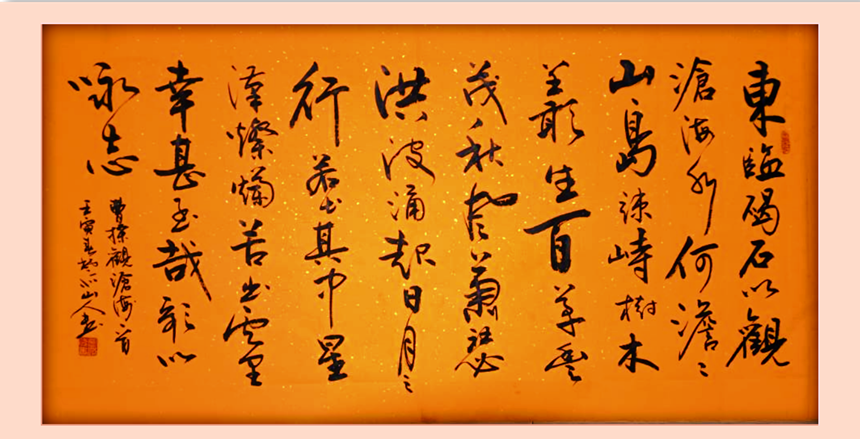 東臨碣石以觀
滄海水何澹〻
山島竦峙樹木
叢生百草豐
茂秋風蕭瑟
洪波涌起日月之
行若出其中星
漢燦爛若出其里
幸甚至哉歌以
咏志
曹操觀滄海一首
壬寅春山人書